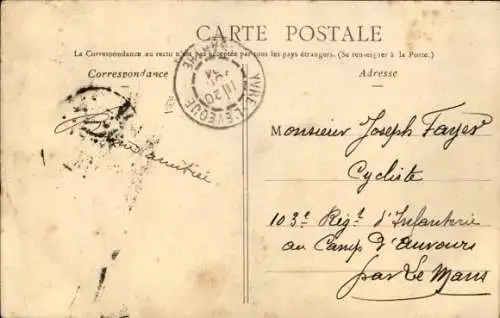 CARTE POSTALE
La Correspondance au recto n'est pas acceptée par tous les pays étrangers. (Se renseigner à la Poste.)
Correspondance
Adresse
YVRÉ-L'ÉVÊQUE
SARTHE
20
Monsieur Joseph Fayer
Cycliste
103e Regt d'Infanterie
au Camp d'auvours
par Le Mans